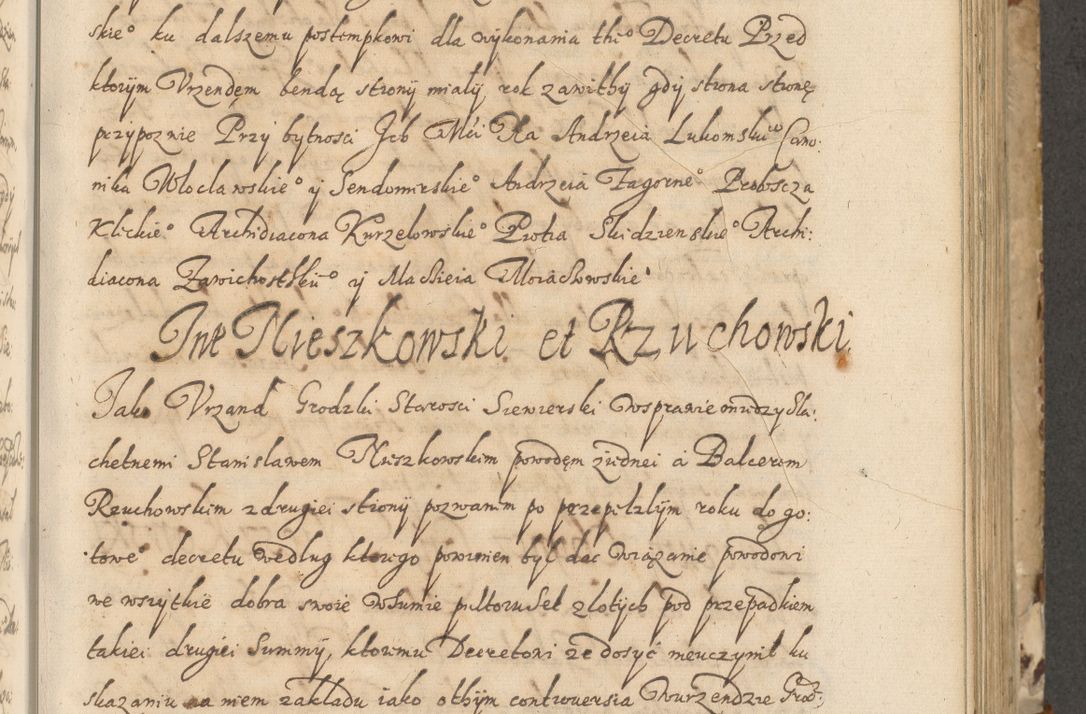 skie° ku dalszemu postempkowi dla wykonania th:° Decretu Przed
ktorym Vrzendęm bendą strony miały rok zawithy gdy strona stronę
przypoznie Przy bytnosci Jch Mći Xa Andrzeia Lukomski° Cano:
nika Wloclawskie° y Sendomirskie° Andrzeia Zagorne° Proboscza
Klickie° Archidiacona Kurzelowskie° Piotra Skidzienskie° Archi:
diacona Zawichostski° y Mackieia Morachowskie°
Int Mieszkowski et Rzuchowski
Jako Vrzand Grodzki Starosci Siewierski W sprawie miedzy Sla:
chetnemi Stanislawem Mieszkowskim powodęm ziednei a Balcerem
Rzuchowskim z drugiei strony pozwanem po przepełzlym roku do go:
towe° decretu według ktorego powinien był dac Wiązanie powodowi
we wszytkie dobra swoie W sumie pultoruset zlotych pod przepadkiem
takiei drugiei Summy, ktoremu Decretowi ze dosyć nieuczynił ku
skazaniu na niem zakladu iako o thym controuersia W urzendzie Grod: